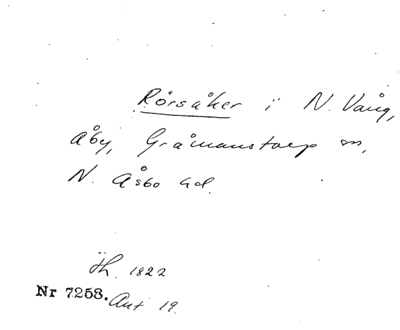 Rörsåker i N. Vång,
Åby, Gråmanstorp sn,
N. Åsbo hd.
Th. 1822
Nr 7258. Ant 19.